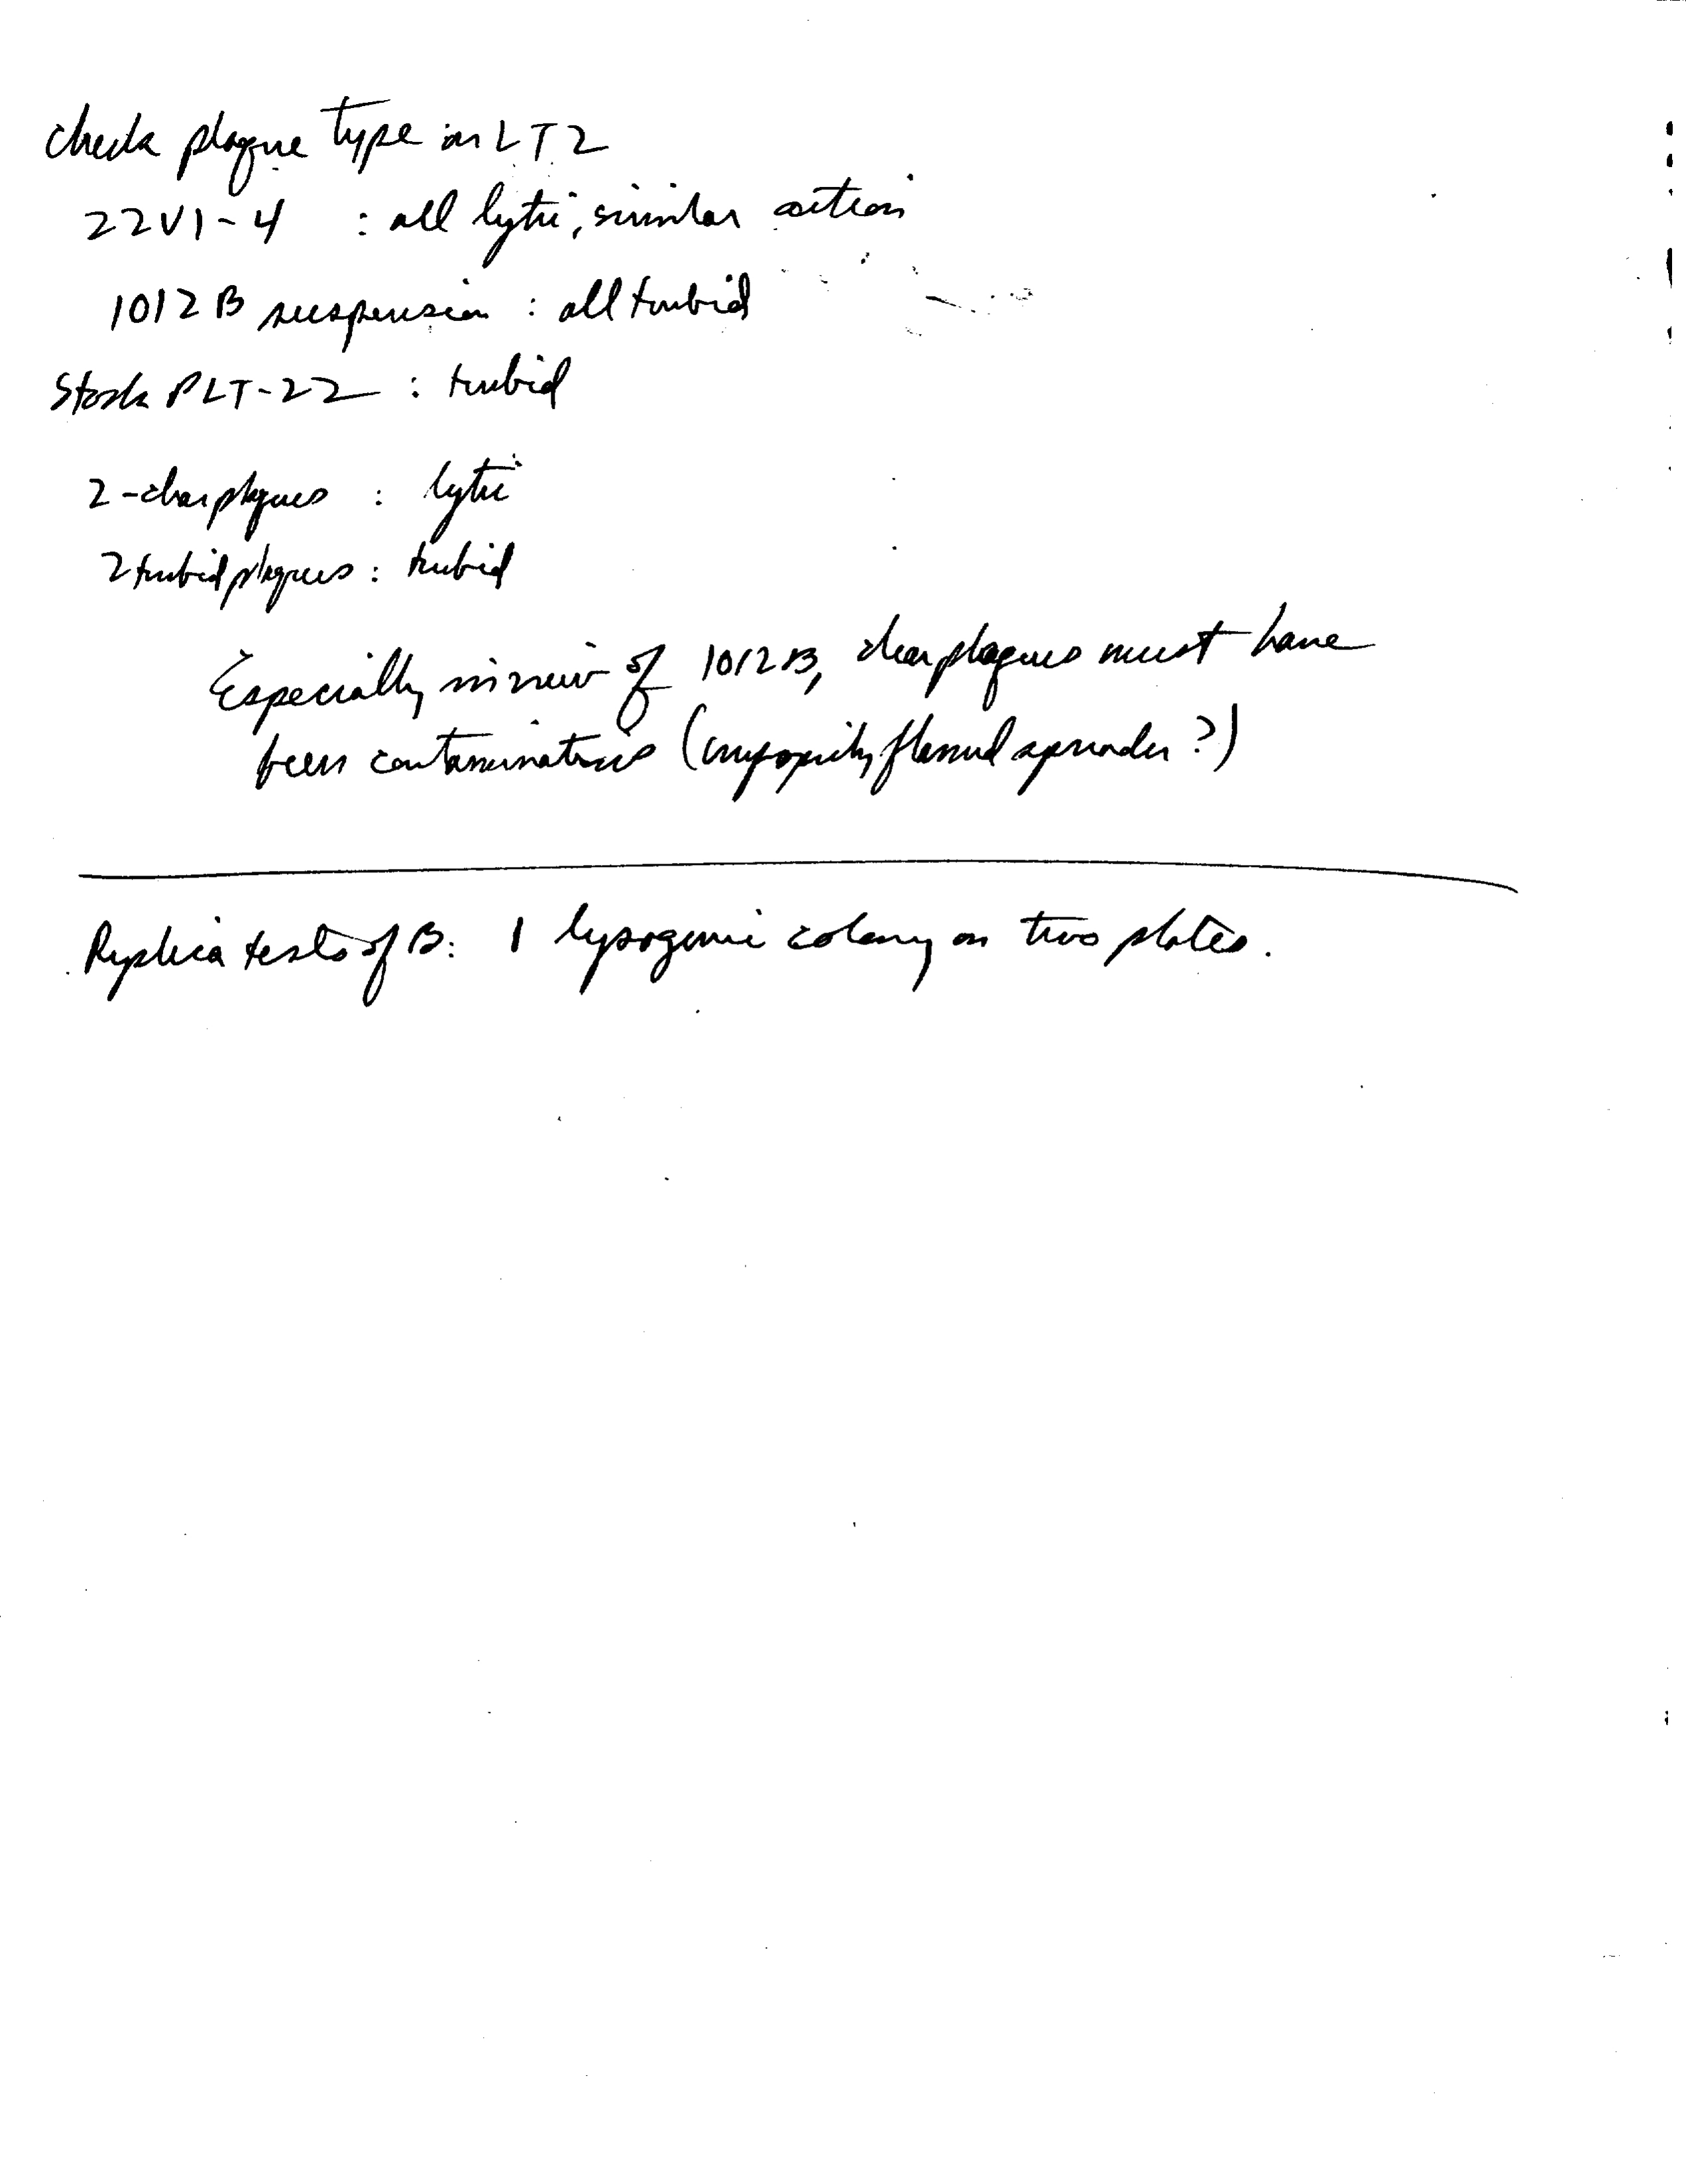 Check plaque type on LT2
22V1-4 : all lytic, similar action
1012B suspension : all turbid
Stock PLT-22 : turbid
2-clear plaques : lytic
2 turbid plaques : turbid
Especially in view of 1012B, clear plaques must have
been contaminations (improperly flamed spreader?)
Replica tests of B: 1 lysogenic colony on two plates.